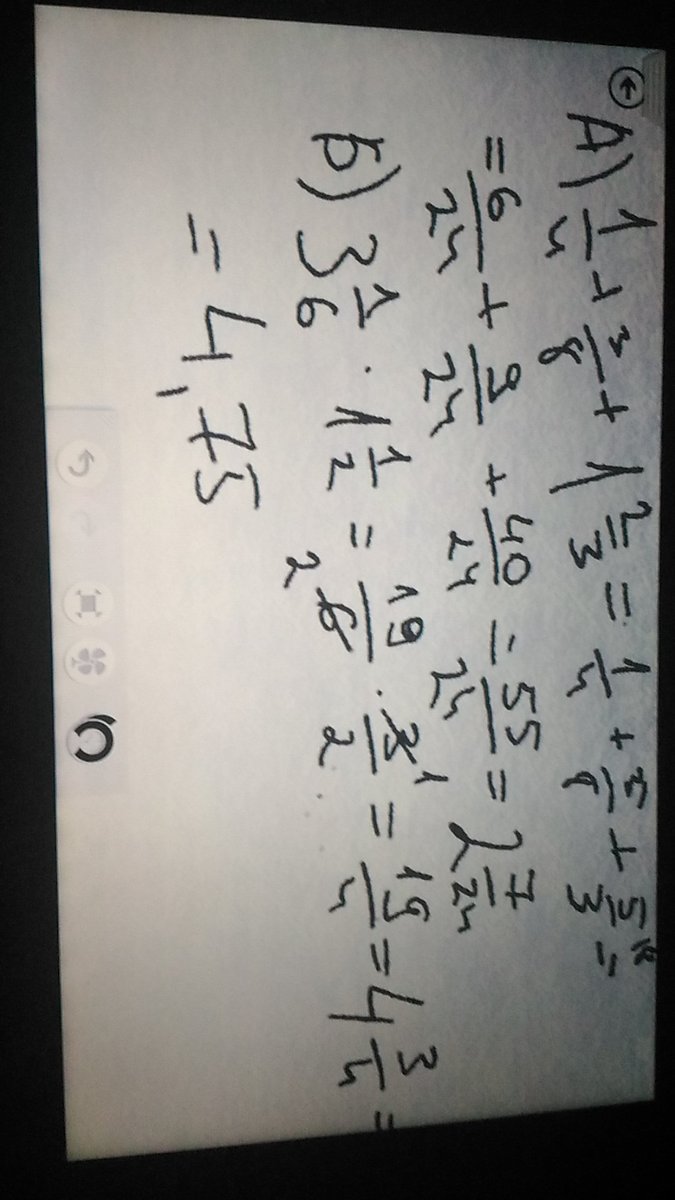 А) 1/4 + 3/8 + 1 2/3 = 1/4 + 3/8 + 5/3 =
= 6/24 + 9/24 + 40/24 = 55/24 = 2 7/24
Б) 3 1/6 · 1 1/2 = 19/6 2 · 3/2 1 = 19/4 = 4 3/4 =
= 4,75